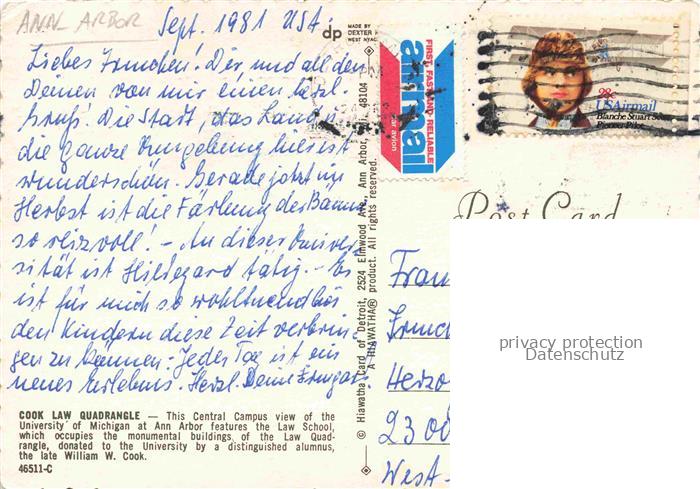 ANN ARBOR
Sept. 1981 USA.
Liebes Irmchen! Dir und all den
Deinen von mir einen herzl.
Gruß! Die Stadt, das Land u.
die ganze Umgebung hier ist
wunderschön. Gerade jetzt im
Herbst ist die Färbung der Bäume
so reizvoll! – An dieser Univer
sität ist Hildegard tätig. – Es
ist für mich so wohltuend bei
den Kindern diese Zeit verbrin-
gen zu können. Jeder Tag ist ein
neues Erlebnis. Herzl. Deine Irmgard.
COOK LAW QUADRANGLE — This Central Campus view of the
University of Michigan at Ann Arbor features the Law School,
which occupies the monumental buildings of the Law Quad-
rangle, donated to the University by a distinguished alumnus,
the late William W. Cook.
46511-C
dp
MADE BY
DEXTER
WEST NYAC
© Hiawatha Card of Detroit, 2524 Elmwood Ave. Ann Arbor, 48104
A HIAWATHA® product. All rights reserved.
PM
FIRST, FAST AND RELIABLE
air mail
par avion
28c
USAirmail
Blanche Stuart
Pioneer Pilot
Post Card
Frau
Irmc
Herzo
2300
West-
privacy protection
Datenschutz